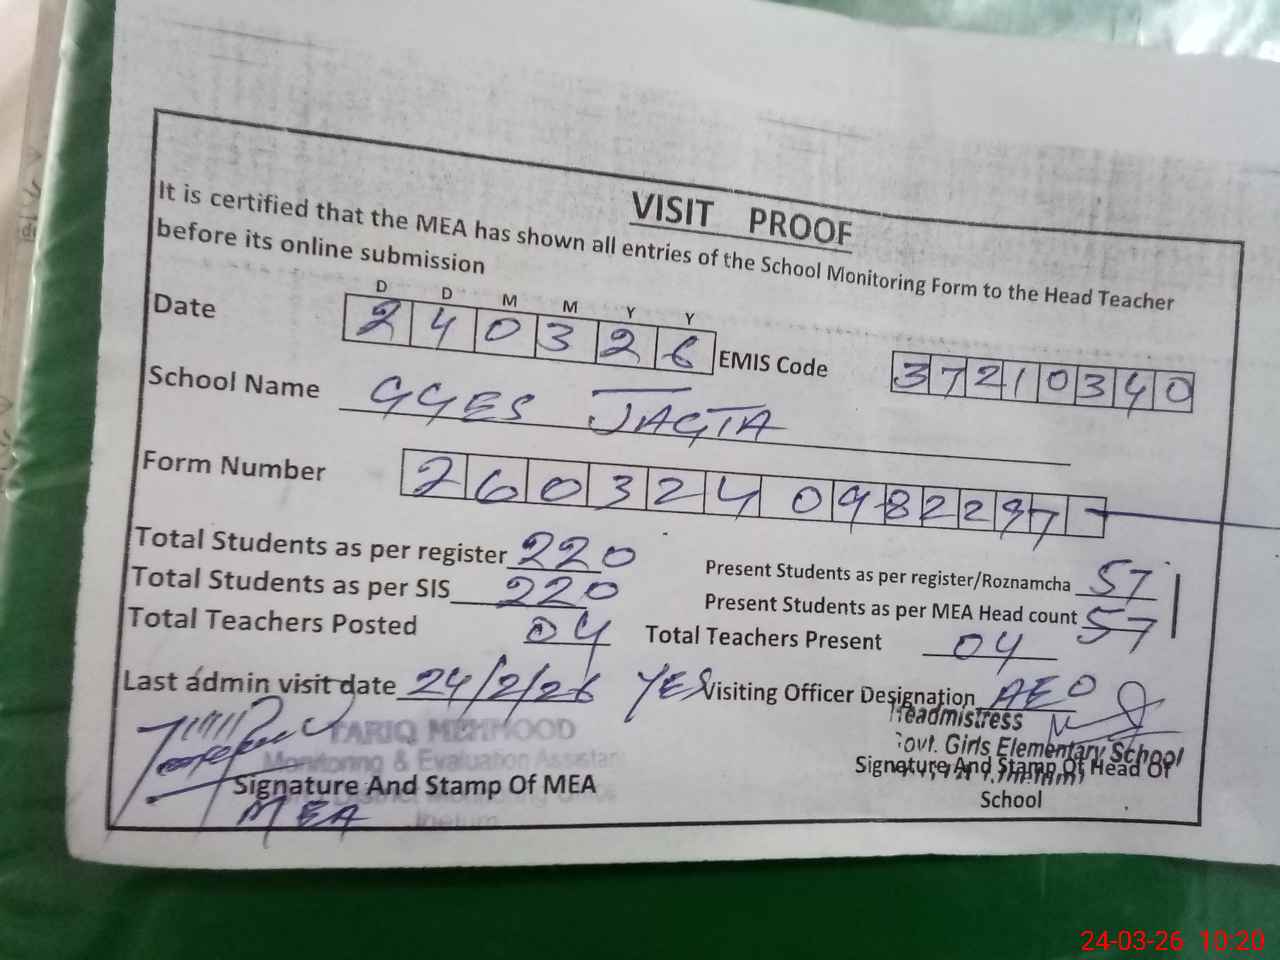 VISIT PROOF
It is certified that the MEA has shown all entries of the School Monitoring Form to the Head Teacher
before its online submission
D D M M Y Y
Date 2 4 0 3 2 6 EMIS Code 3 7 2 1 0 3 4 0
School Name GGES JAGTA
Form Number 2 6 0 3 2 4 0 9 8 2 2 9 7
Total Students as per register 220 Present Students as per register/Roznamcha 57
Total Students as per SIS 220 Present Students as per MEA Head count 57
Total Teachers Posted 04 Total Teachers Present 04
Last admin visit date 24/2/26 YES Visiting Officer Designation AEO
TARIQ MEHMOOD
Monitoring & Evaluation Assistant
Signature And Stamp Of MEA
District Monitoring
Jhelum
MEA
Headmistress
Govt. Girls Elementary School
Signature And Stamp Of Head Of
School
24-03-26 10:20